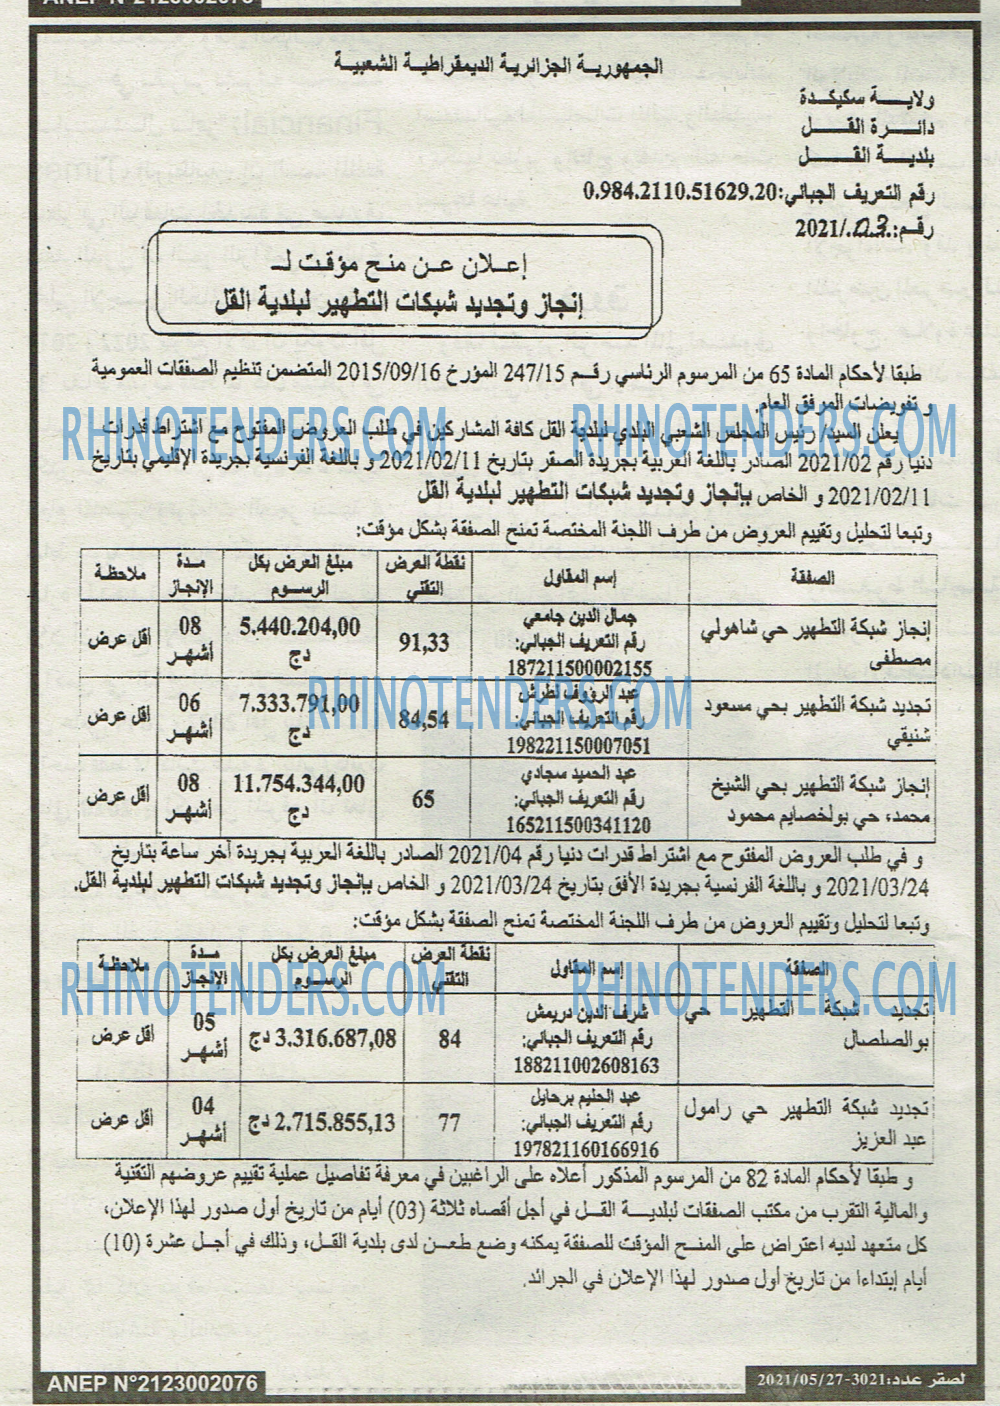 الجمهورية الجزائرية الديمقراطية الشعبية
ولايـــة سكيكـدة
دائـــرة القـــل
بلديـة القـــل
رقم التعريف الجبائي:0.984.2110.51629.20
رقم:.03./2021
إعـلان عـن منـح مؤقـت لـ
إنجاز وتجديد شبكات التطهير لبلدية القل
طبقا لأحكام المادة 65 من المرسوم الرئاسي رقـم 247/15 المؤرخ 2015/09/16 المتضمن تنظيم الصفقات العمومية
و تفويضات المرفق العام.
يعلن السيد/ رئيس المجلس الشعبي البلدي لبلدية القل كافة المشاركين في طلب العروض المفتوح مع اشتراط قدرات
دنيا رقم 2021/02 الصادر باللغة العربية بجريدة الصقر بتاريخ 2021/02/11 و باللغة الفرنسية بجريدة الإقليمي بتاريخ
2021/02/11 و الخاص بإنجاز وتجديد شبكات التطهير لبلدية القل
وتبعا لتحليل وتقييم العروض من طرف اللجنة المختصة تمنح الصفقة بشكل مؤقت:
الصفقة | إسم المقاول | نقطة العرض التقني | مبلغ العرض بكل الرسـوم | مـدة الإنجـاز | ملاحظـة
إنجاز شبكة التطهير حي شاهولي مصطفى | جمال الدين جامعي رقم التعريف الجبائي: 187211500002155 | 91,33 | 5.440.204,00 دج | 08 أشهـر | أقل عرض
تجديد شبكة التطهير بحي مسعود شنيقي | عبد الرؤوف لطرش رقم التعريف الجبائي: 198221150007051 | 84,54 | 7.333.791,00 دج | 06 أشهـر | أقل عرض
إنجاز شبكة التطهير بحي الشيخ محمد، حي بولخصايم محمود | عبد الحميد سجادي رقم التعريف الجبائي: 165211500341120 | 65 | 11.754.344,00 دج | 08 أشهـر | أقل عرض
و في طلب العروض المفتوح مع اشتراط قدرات دنيا رقم 2021/04 الصادر باللغة العربية بجريدة آخر ساعة بتاريخ
2021/03/24 و باللغة الفرنسية بجريدة الأفق بتاريخ 2021/03/24 و الخاص بإنجاز وتجديد شبكات التطهير لبلدية القل.
وتبعا لتحليل وتقييم العروض من طرف اللجنة المختصة تمنح الصفقة بشكل مؤقت:
الصفقة | إسم المقاول | نقطة العرض التقني | مبلغ العرض بكل الرسـوم | مـدة الإنجـاز | ملاحظـة
تجديد شبكة التطهير حي بوالصلصال | شرف الدين دريمش رقم التعريف الجبائي: 188211002608163 | 84 | 3.316.687,08 دج | 05 أشهـر | اقل عرض
تجديد شبكة التطهير حي رامول عبد العزيز | عبد الحليم برحايل رقم التعريف الجبائي: 197821160166916 | 77 | 2.715.855,13 دج | 04 أشهـر | اقل عرض
و طبقا لأحكام المادة 82 من المرسوم المذكور أعلاه على الراغبين في معرفة تفاصيل عملية تقييم عروضهم التقنية
والمالية التقرب من مكتب الصفقات لبلديـة القـل في أجل أقصاه ثلاثة (03) أيام من تاريخ أول صدور لهذا الإعلان،
كل متعهد لديه اعتراض على المنـح المؤقت للصفقة يمكنه وضع طعـن لدى بلدية القـل، وذلك في أجـل عشـرة (10)
أيام إبتداءا من تاريخ أول صدور لهذا الإعلان في الجرائد.
ANEP N°2123002076
لصقر عدد:3021-2021/05/27
RHINOTENDERS.COM
RHINOTENDERS.COM
RHINOTENDERS.COM
RHINOTENDERS.COM
RHINOTENDERS.COM